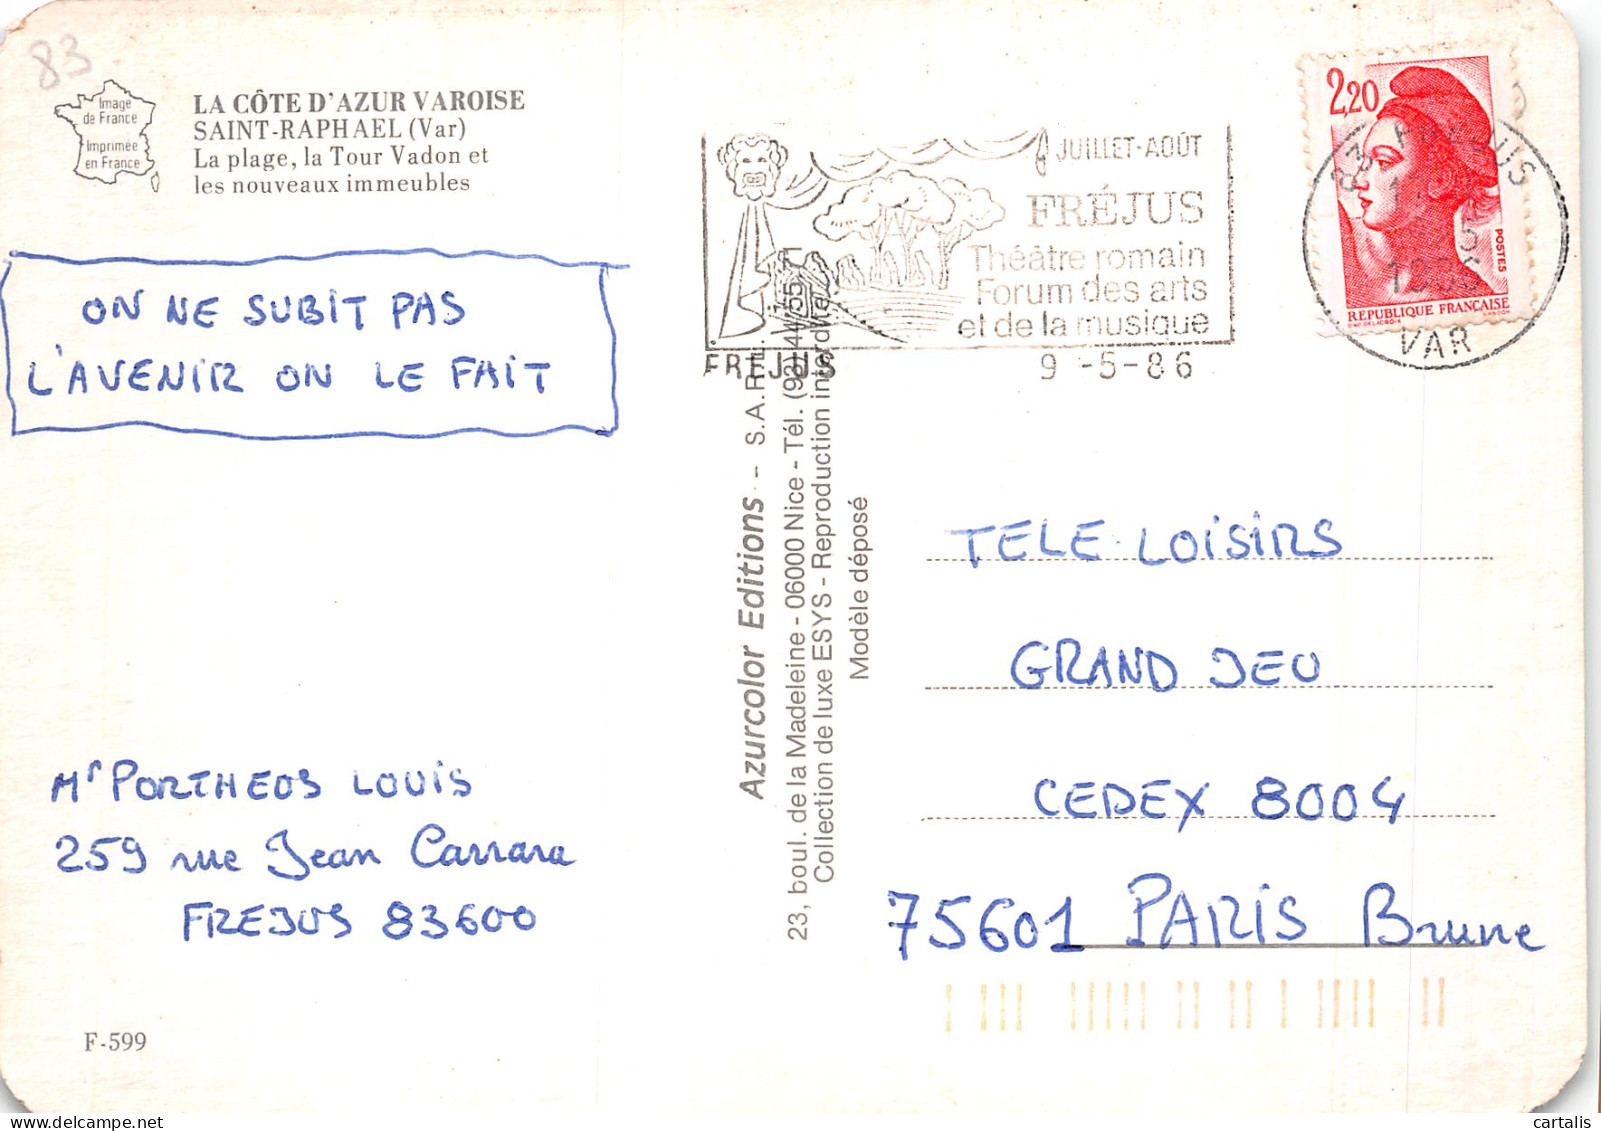 83
Image
de France
Imprimée
en France
LA CÔTE D'AZUR VAROISE
SAINT-RAPHAEL (Var)
La plage, la Tour Vadon et
les nouveaux immeubles
ON NE SUBIT PAS
L'AVENIR ON LE FAIT
Mr PORTHEOS LOUIS
259 rue Jean Carrara
FREJUS 83600
F-599
Azurcolor Editions - S.A.R.L.
23, boul. de la Madeleine - 06000 Nice - Tél. (93) 44.55.71
Collection de luxe ESYS - Reproduction interdite
Modèle déposé
JUILLET-AOÛT
FRÉJUS
Théâtre romain
Forum des arts
et de la musique
FREJUS
9-5-86
2,20
POSTES
REPUBLIQUE FRANÇAISE
D'AP. DELACROIX
GANDON
83 FREJUS
1986
VAR
TELE LOISIRS
GRAND JEU
CEDEX 8004
75601 PARIS Brune
cartalis